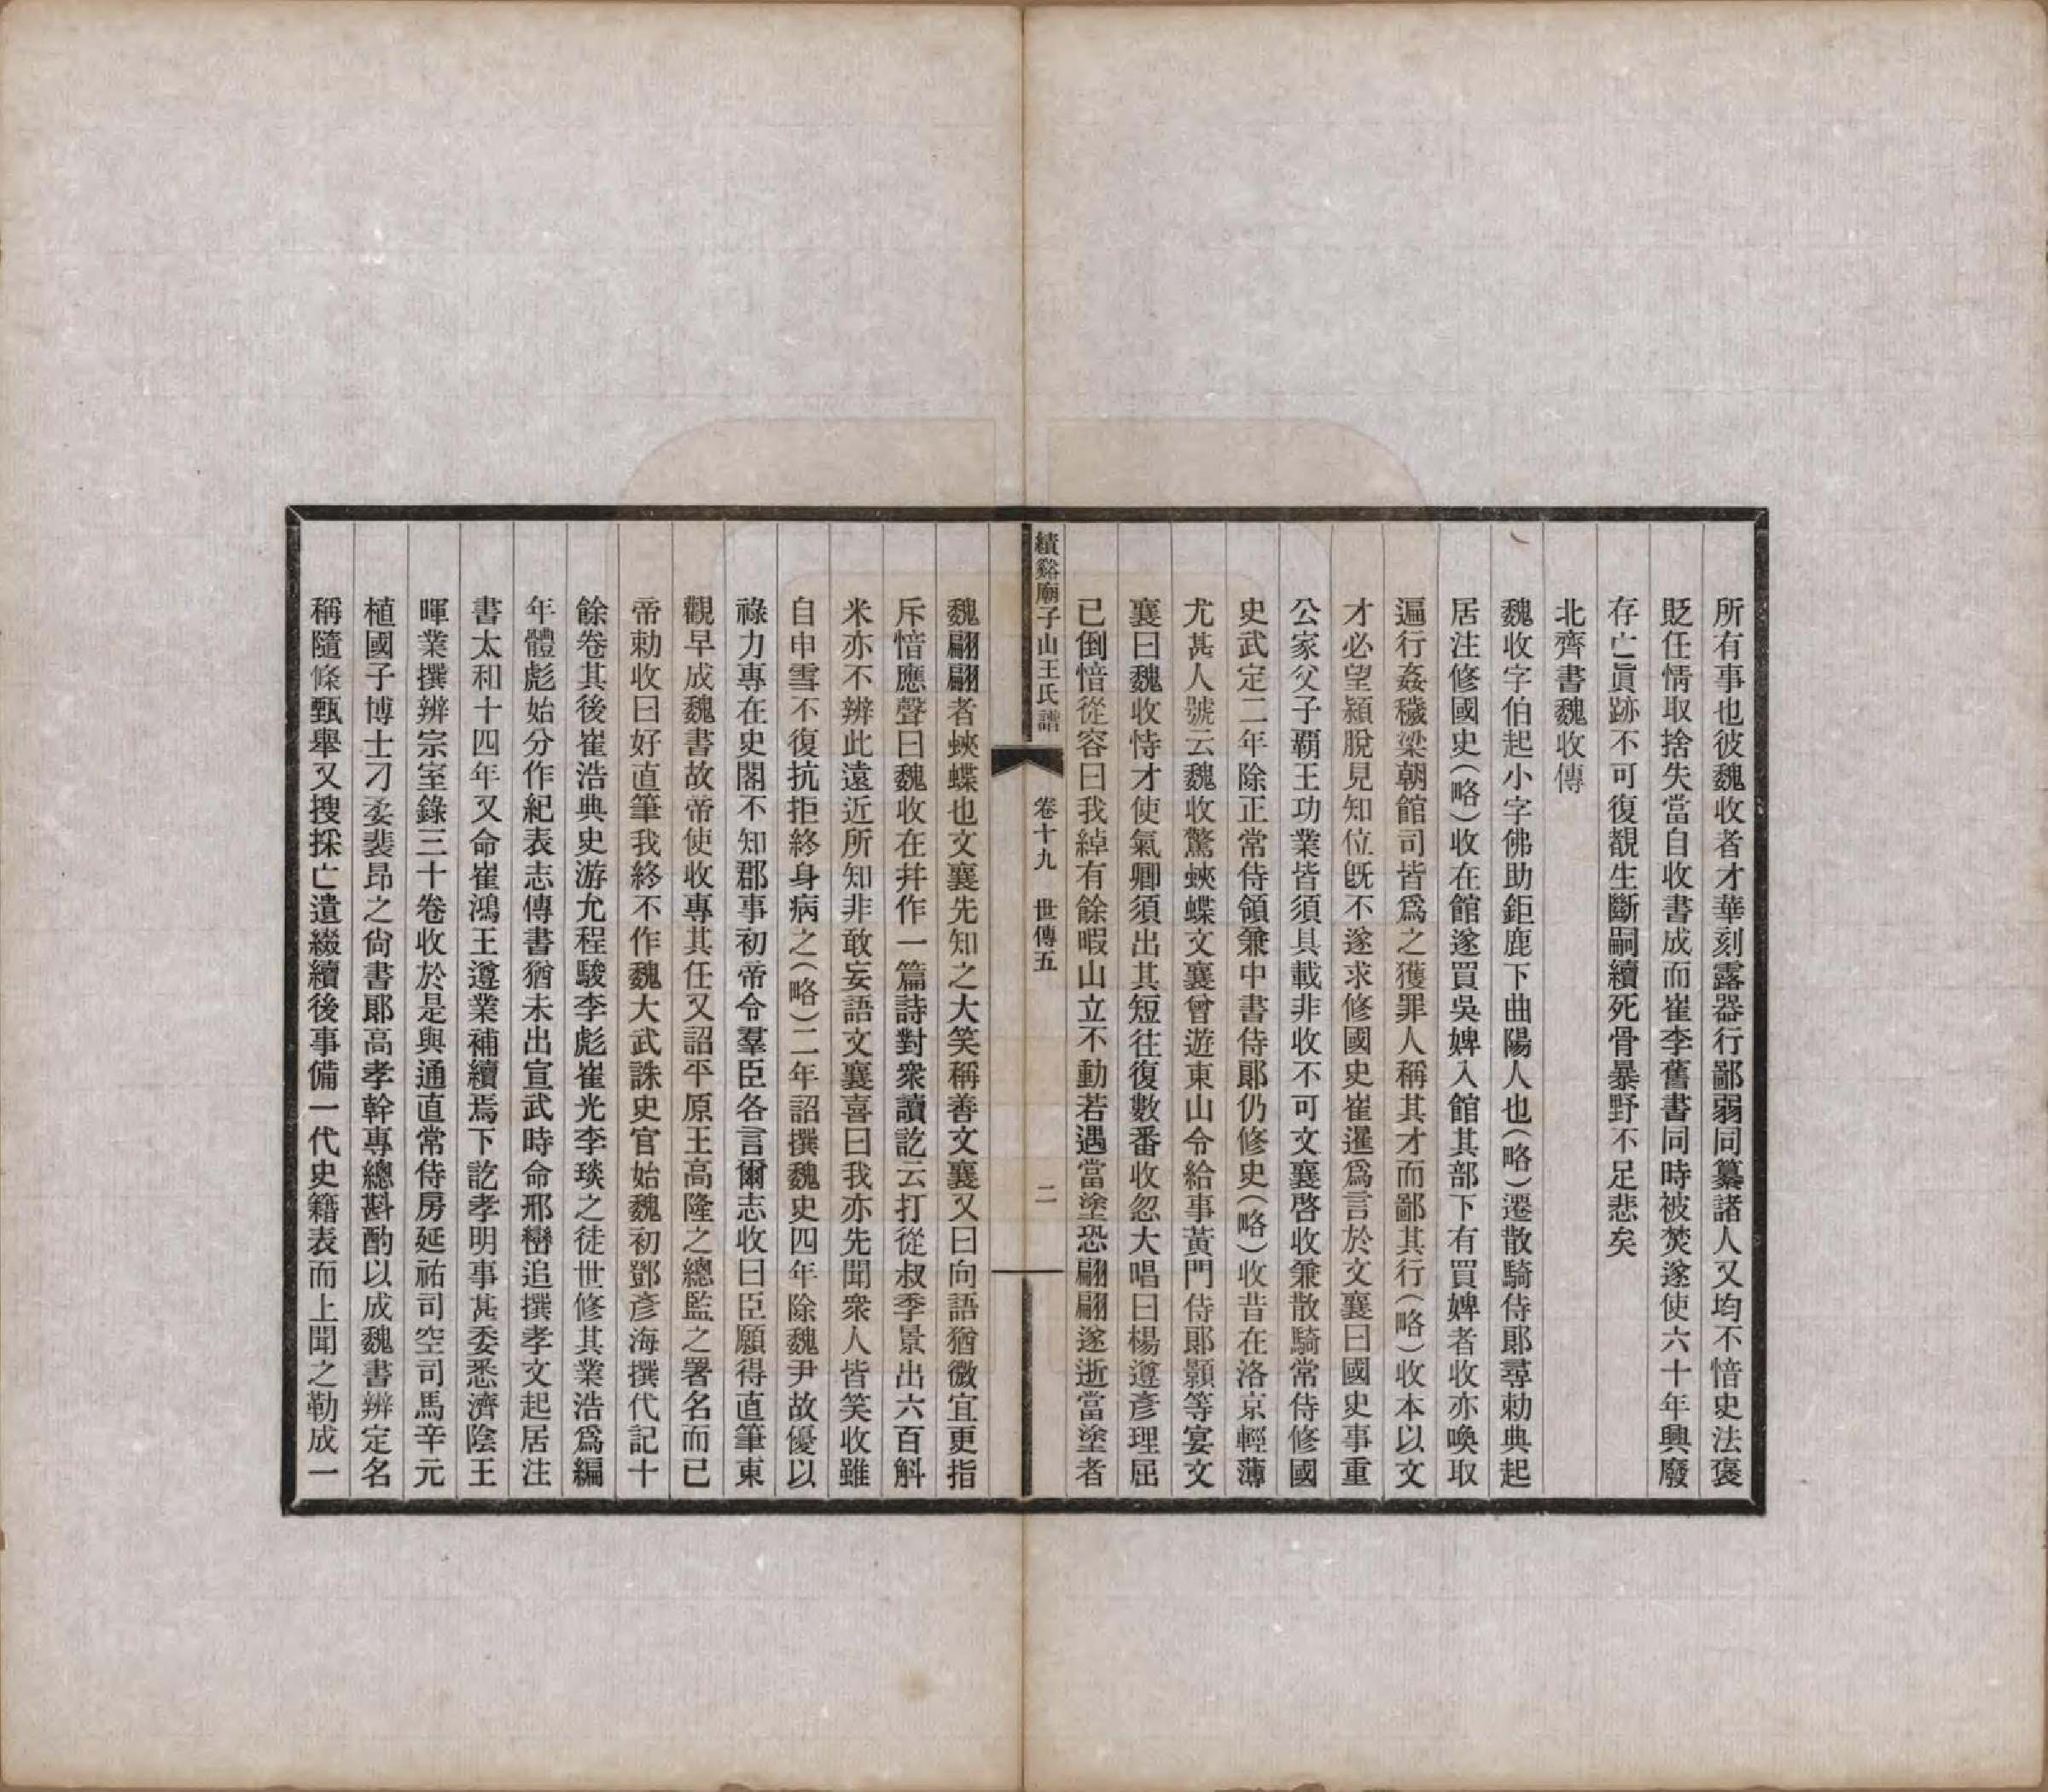 所有事也彼魏收者才華刻露器行鄙弱同纂諸人又均不愔史法褒
貶任情取捨失當自收書成而崔李舊書同時被焚遂使六十年興廢
存亡眞跡不可復覩生斷嗣續死骨暴野不足悲矣
北齊書魏收傳
魏收字伯起小字佛助鉅鹿下曲陽人也（略）遷散騎侍郎尋勅典起
居注修國史（略）收在館遂買吳婢入館其部下有買婢者收亦喚取
遍行姦穢梁朝館司皆爲之獲罪人稱其才而鄙其行（略）收本以文
才必望潁脫見知位旣不遂求修國史崔暹爲言於文襄曰國史事重
公家父子霸王功業皆須具載非收不可文襄啓收兼散騎常侍修國
史武定二年除正常侍領兼中書侍郎仍修史（略）收昔在洛京輕薄
尤甚人號云魏收驚蛺蝶文襄曾遊東山令給事黃門侍郎顥等宴文
襄曰魏收恃才使氣卿須出其短往復數番收忽大唱曰楊遵彥理屈
已倒愔從容曰我綽有餘暇山立不動若遇當塗恐翩翩遂逝當塗者
績谿廟子山王氏譜　卷十九　世傳五　二
魏翩翩者蛺蝶也文襄先知之大笑稱善文襄又曰向語猶微宜更指
斥愔應聲曰魏收在幷作一篇詩對衆讀訖云打從叔季景出六百斛
米亦不辨此遠近所知非敢妄語文襄喜曰我亦先聞衆人皆笑收雖
自申雪不復抗拒終身病之（略）二年詔撰魏史四年除魏尹故優以
祿力專在史閣不知郡事初帝令羣臣各言爾志收曰臣願得直筆東
觀早成魏書故帝使收專其任又詔平原王高隆之總監之署名而已
帝勅收曰好直筆我終不作魏大武誅史官始魏初鄧彥海撰代記十
餘卷其後崔浩典史游允程駿李彪崔光李琰之徒世修其業浩爲編
年體彪始分作紀表志傳書猶未出宣武時命邢巒追撰孝文起居注
書太和十四年又命崔鴻王遵業補續焉下訖孝明事甚委悉濟陰王
暉業撰辨宗室錄三十卷收於是與通直常侍房延祐司空司馬辛元
植國子博士刁柔裴昂之尙書郎高孝幹專總斟酌以成魏書辨定名
稱隨條甄舉又搜採亡遺綴續後事備一代史籍表而上聞之勒成一